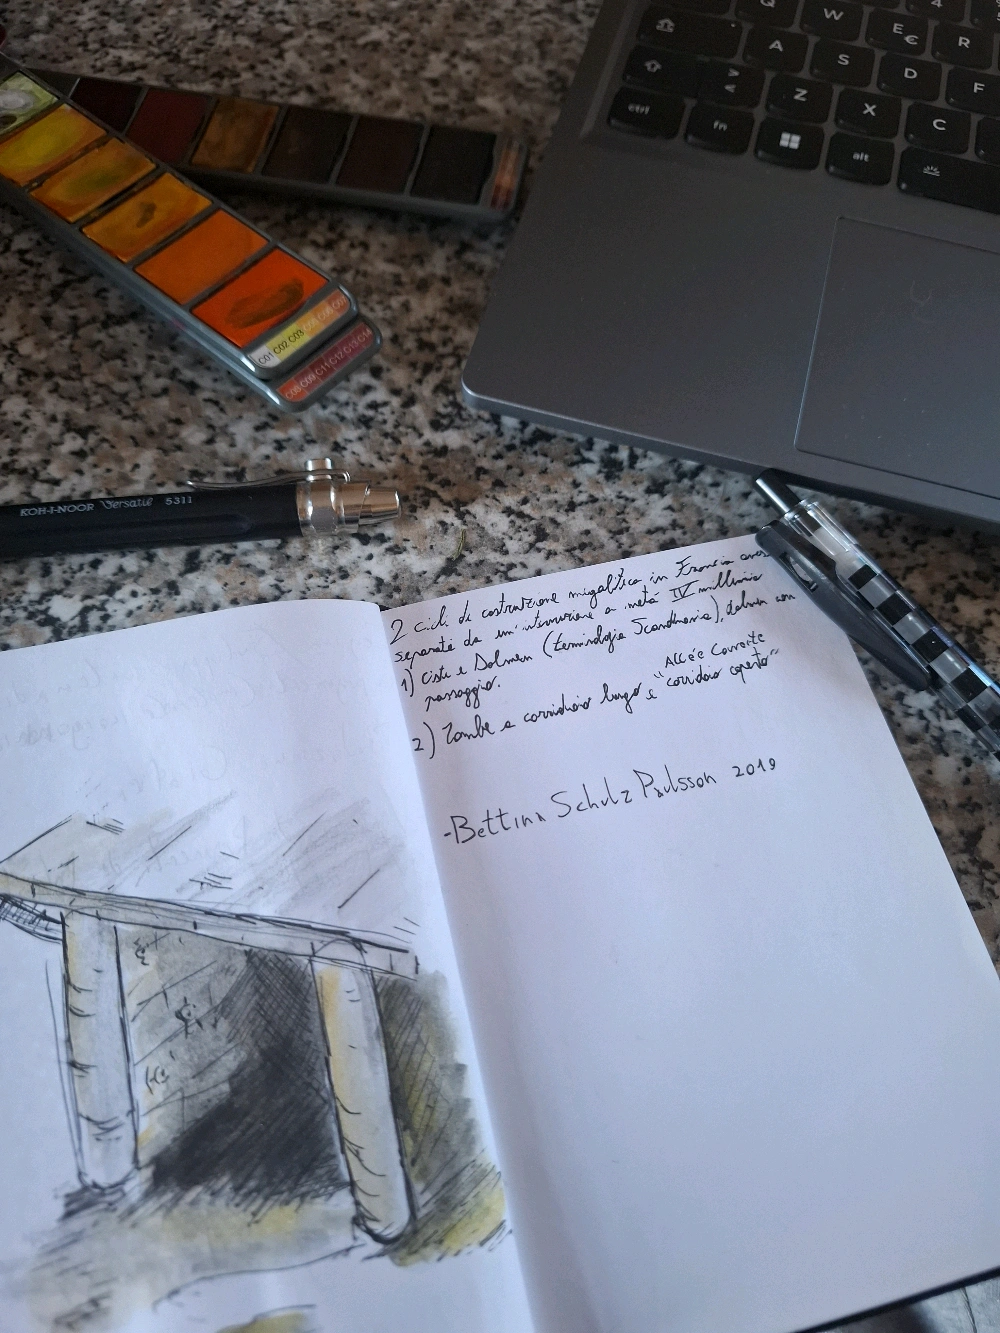 Q W E € R 4
A S D F
> < Z X C
ctrl fn alt
C01 C02 C03
C08 C09 C11 C12 C13 C14
KOH-I-NOOR Versatil 5311
2 cicli di costruzione megalitica in Francia
separate da un'interruzione a metà IV millennio
1) Ciste e Dolmen (terminologia Scandinavia), dolmen con
passaggio.
Allée Couverte
2) Tombe a corridoio lungo e "corridoio coperto"
-Bettina Schulz Paulsson 2019